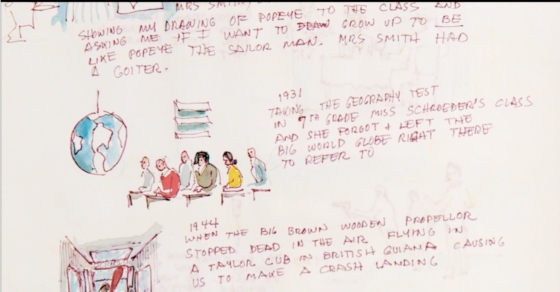 MRS SMITH
SHOWING MY DRAWING OF POPEYE TO THE CLASS AND
ASKING ME IF I WANT TO GROW UP TO BE
LIKE POPEYE THE SAILOR MAN. MRS SMITH HAD
A GOITER.
1931
TAKING THE GEOGRAPHY TEST
IN 7TH GRADE MISS SCHROEDER'S CLASS
AND SHE FORGOT & LEFT THE
BIG WORLD GLOBE RIGHT THERE
TO REFER TO
1944
WHEN THE BIG BROWN WOODEN PROPELLOR
STOPPED DEAD IN THE AIR FLYING IN
A TAYLOR CUB IN BRITISH GUIANA CAUSING
US TO MAKE A CRASH LANDING